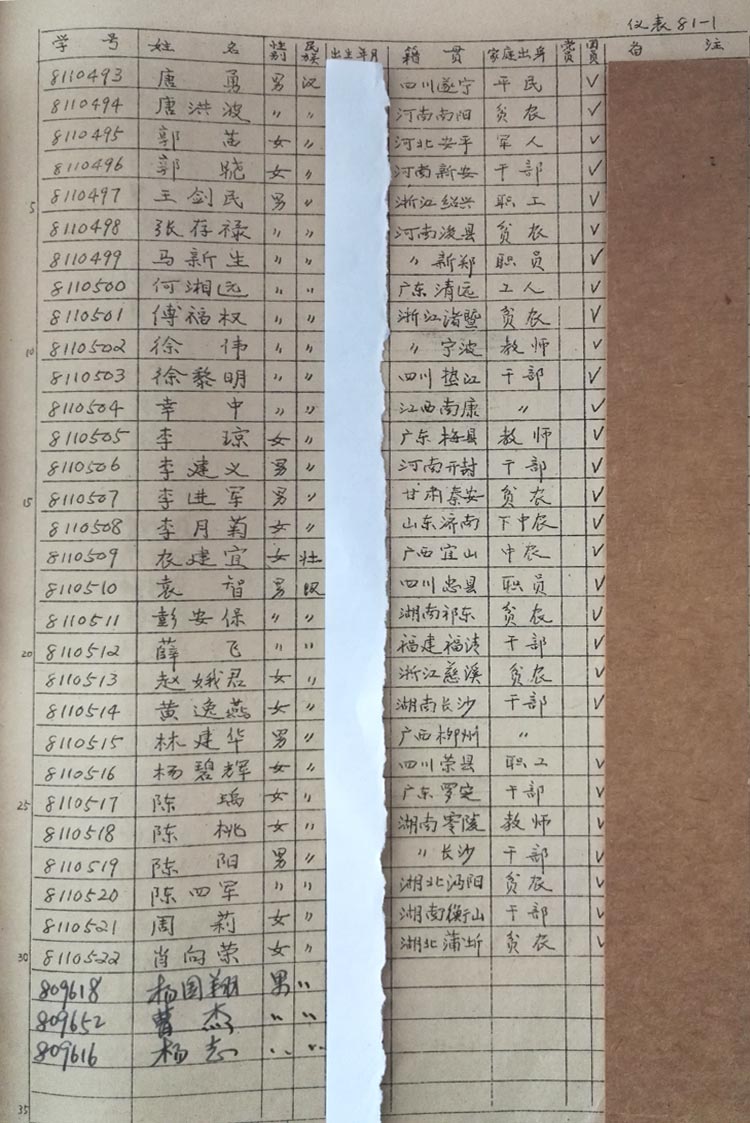 仪表81-1
学号 姓名 性别 民族 出生年月 籍贯 家庭出身 党员 团员 备注
8110493 唐勇 男 汉 四川遂宁 平民 ✓
8110494 唐洪波 〃 〃 河南南阳 贫农 ✓
8110495 郭苗 女 〃 河北安平 军人 ✓
8110496 郭晓 女 〃 河南新安 干部 ✓
5 8110497 王剑民 男 〃 浙江绍兴 职工 ✓
8110498 张存禄 〃 〃 河南浚县 贫农 ✓
8110499 马新生 〃 〃 〃 新郑 职员 ✓
8110500 何湘远 〃 〃 广东清远 工人 ✓
8110501 傅福权 〃 〃 浙江诸暨 贫农 ✓
10 8110502 徐伟 〃 〃 〃 宁波 教师 ✓
8110503 徐黎明 〃 〃 四川垫江 干部 ✓
8110504 幸中 〃 〃 江西南康 〃 ✓
8110505 李琼 女 〃 广东梅县 教师 ✓
8110506 李建义 男 〃 河南开封 干部 ✓
15 8110507 李进军 男 〃 甘肃秦安 贫农 ✓
8110508 李月菊 女 〃 山东济南 下中农 ✓
8110509 农建宜 女 壮 广西宜山 中农 ✓
8110510 袁智 男 汉 四川忠县 职员 ✓
8110511 彭安保 〃 〃 湖南祁东 贫农 ✓
20 8110512 薛飞 〃 〃 福建福清 干部 ✓
8110513 赵娥君 女 〃 浙江慈溪 贫农 ✓
8110514 黄逸燕 女 〃 湖南长沙 干部 ✓
8110515 林建华 男 〃 广西柳州 〃
8110516 杨碧辉 女 〃 四川荣县 职工 ✓
25 8110517 陈瑀 女 〃 广东罗定 干部 ✓
8110518 陈桃 女 〃 湖南零陵 教师 ✓
8110519 陈阳 男 〃 〃 长沙 干部 ✓
8110520 陈四军 〃 〃 湖北沔阳 贫农 ✓
8110521 周莉 女 〃 湖南衡山 干部 ✓
30 8110522 肖向荣 女 〃 湖北蒲圻 贫农 ✓
809618 杨国翔 男 〃
809652 曹杰 〃 〃
809616 杨志 〃 〃
35